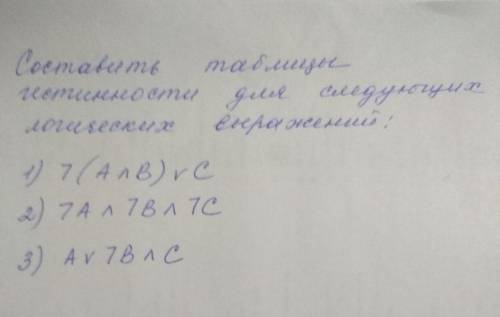 Составить таблицы
истинности для следующих
логических выражений:
1) ꓶ(A ∧ B) ∨ C
2) ꓶA ∧ ꓶB ∧ ꓶC
3) A ∨ ꓶB ∧ C